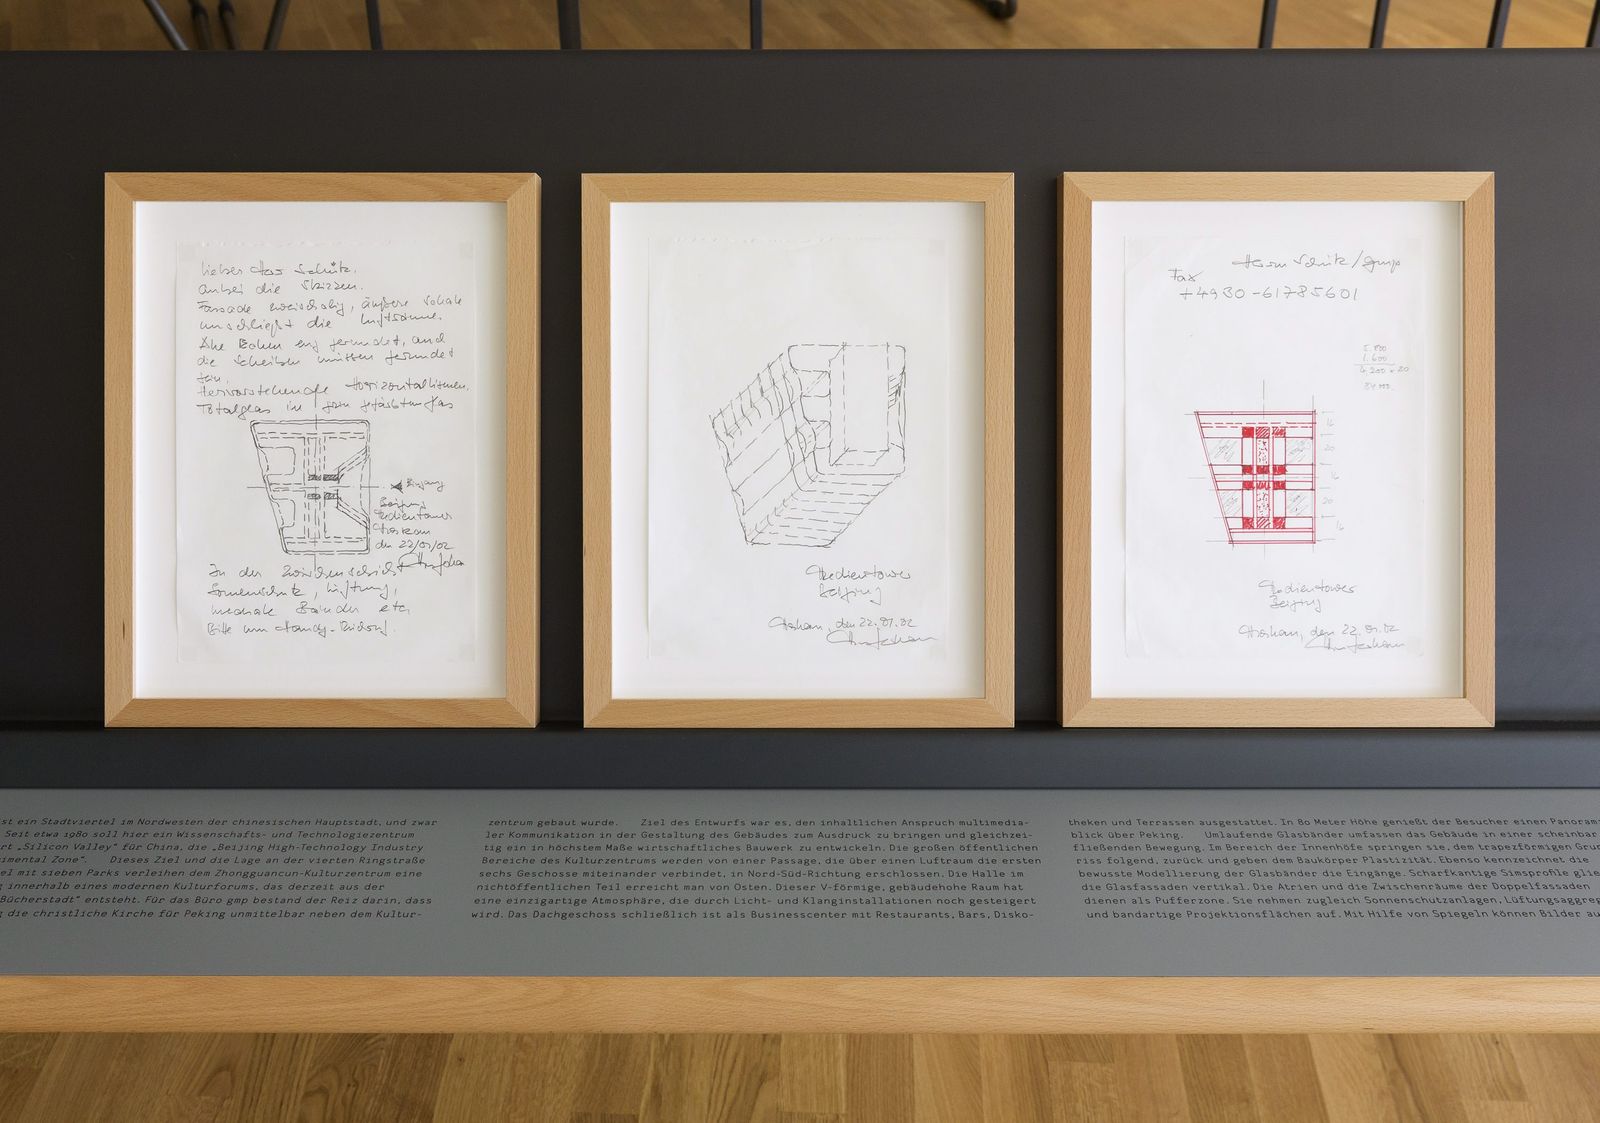 Lieber Herr Schütz.
anbei die Skizzen.
Fassade zweischalig, äußere Schale
umschließt die
Alle Ecken eng gerundet, auch
die Scheiben müssen gerundet
sein.
Hervorstehende Horizontallisenen.
Totalglas in grün gefärbtem Glas
Eingang
Beijing
Medientower
den 22/01/02
In der Zwischenschicht
Sonnenschutz, Lüftung,
mediale Bänder etc.
Bitte um Handy-Rückruf.
Medientower
Beijing
den 22.01.02
Herrn Schütz / gmp
Fax
+4930-61785601
16
20
16
20
16
Medientower
Beijing
den 22.01.02
st ein Stadtviertel im Nordwesten der chinesischen Hauptstadt, und zwar
Seit etwa 1980 soll hier ein Wissenschafts- und Technologiezentrum
rt „Silicon Valley" für China, die „Beijing High-Technology Industry
imental Zone". Dieses Ziel und die Lage an der vierten Ringstraße
el mit sieben Parks verleihen dem Zhongguancun-Kulturzentrum eine
g innerhalb eines modernen Kulturforums, das derzeit aus der
Bücherstadt" entsteht. Für das Büro gmp bestand der Reiz darin, dass
g die christliche Kirche für Peking unmittelbar neben dem Kultur-
zentrum gebaut wurde. Ziel des Entwurfs war es, den inhaltlichen Anspruch multimedia-
ler Kommunikation in der Gestaltung des Gebäudes zum Ausdruck zu bringen und gleichzei-
tig ein in höchstem Maße wirtschaftliches Bauwerk zu entwickeln. Die großen öffentlichen
Bereiche des Kulturzentrums werden von einer Passage, die über einen Luftraum die ersten
sechs Geschosse miteinander verbindet, in Nord-Süd-Richtung erschlossen. Die Halle im
nichtöffentlichen Teil erreicht man von Osten. Dieser V-förmige, gebäudehohe Raum hat
eine einzigartige Atmosphäre, die durch Licht- und Klanginstallationen noch gesteigert
wird. Das Dachgeschoss schließlich ist als Businesscenter mit Restaurants, Bars, Disko-
theken und Terrassen ausgestattet. In 80 Meter Höhe genießt der Besucher einen Panoram
blick über Peking. Umlaufende Glasbänder umfassen das Gebäude in einer scheinbar
fließenden Bewegung. Im Bereich der Innenhöfe springen sie, dem trapezförmigen Grun
riss folgend, zurück und geben dem Baukörper Plastizität. Ebenso kennzeichnet die
bewusste Modellierung der Glasbänder die Eingänge. Scharfkantige Simsprofile glie
die Glasfassaden vertikal. Die Atrien und die Zwischenräume der Doppelfassaden
dienen als Pufferzone. Sie nehmen zugleich Sonnenschutzanlagen, Lüftungsaggreg
und bandartige Projektionsflächen auf. Mit Hilfe von Spiegeln können Bilder au